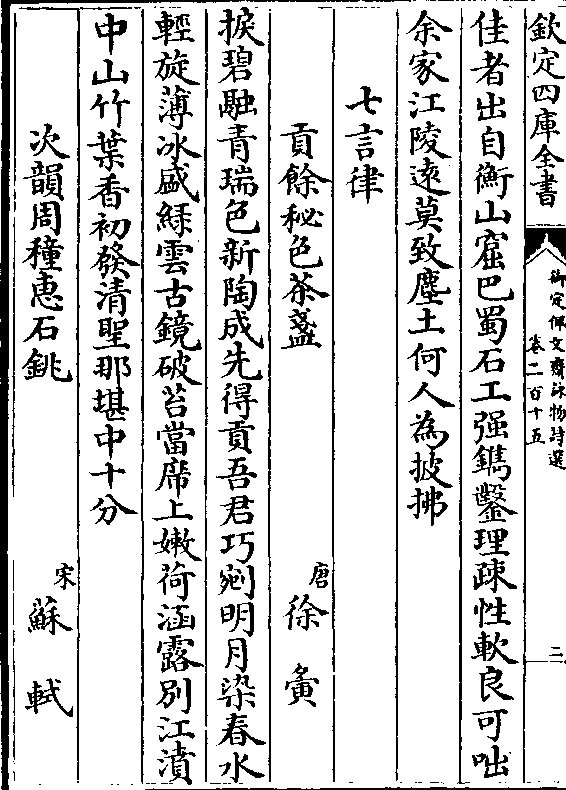 欽定四庫全書
御定佩文齋詠物詩選
卷二百十五
二
佳者出自衡山窟巴蜀石工强鐫鑿理疎性軟良可咄
余家江陵遠莫致塵土何人為披拂
七言律
貢餘秘色茶盞
唐徐夤
捩碧融青瑞色新陶成先得貢吾君巧剜明月染春水
輕旋薄冰盛緑雲古鏡破苔當席上嫩荷涵露別江濆
中山竹葉香初發清聖那堪中十分
次韻周穜惠石銚
宋蘇軾